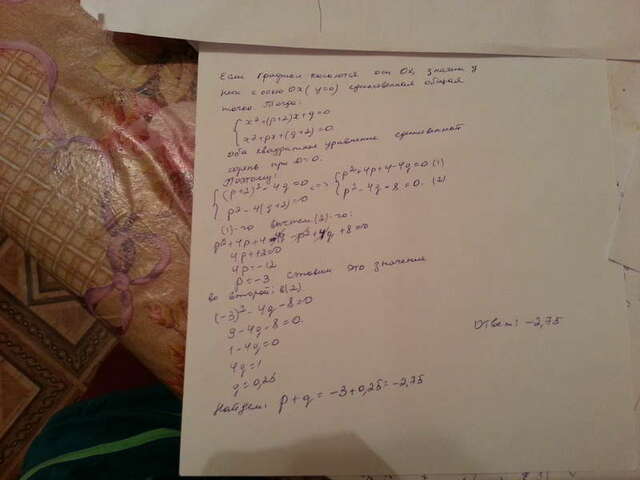 Если графики касаются оси Ox, значит у
них с осью Ox (y=0) единственная общая
точка. Тогда:
{ x²+(p+2)x+q=0
x²+px+(q+2)=0
оба квадратные уравнение единственный
корень при D=0.
Поэтому:
{ (p+2)²-4q=0 <=> { p²+4p+4-4q=0 (1)
p²-4(q+2)=0 p²-4q-8=0. (2)
(1)-го вычтем (2)-го:
p²+4p+4-4q-p²+4q+8=0
4p+12=0
4p=-12
p=-3 ставим это значение
во второй: в(2)
(-3)²-4q-8=0
9-4q-8=0.
1-4q=0
4q=1
q=0,25
Найдем: p+q=-3+0,25=-2,75
Ответ: -2,75